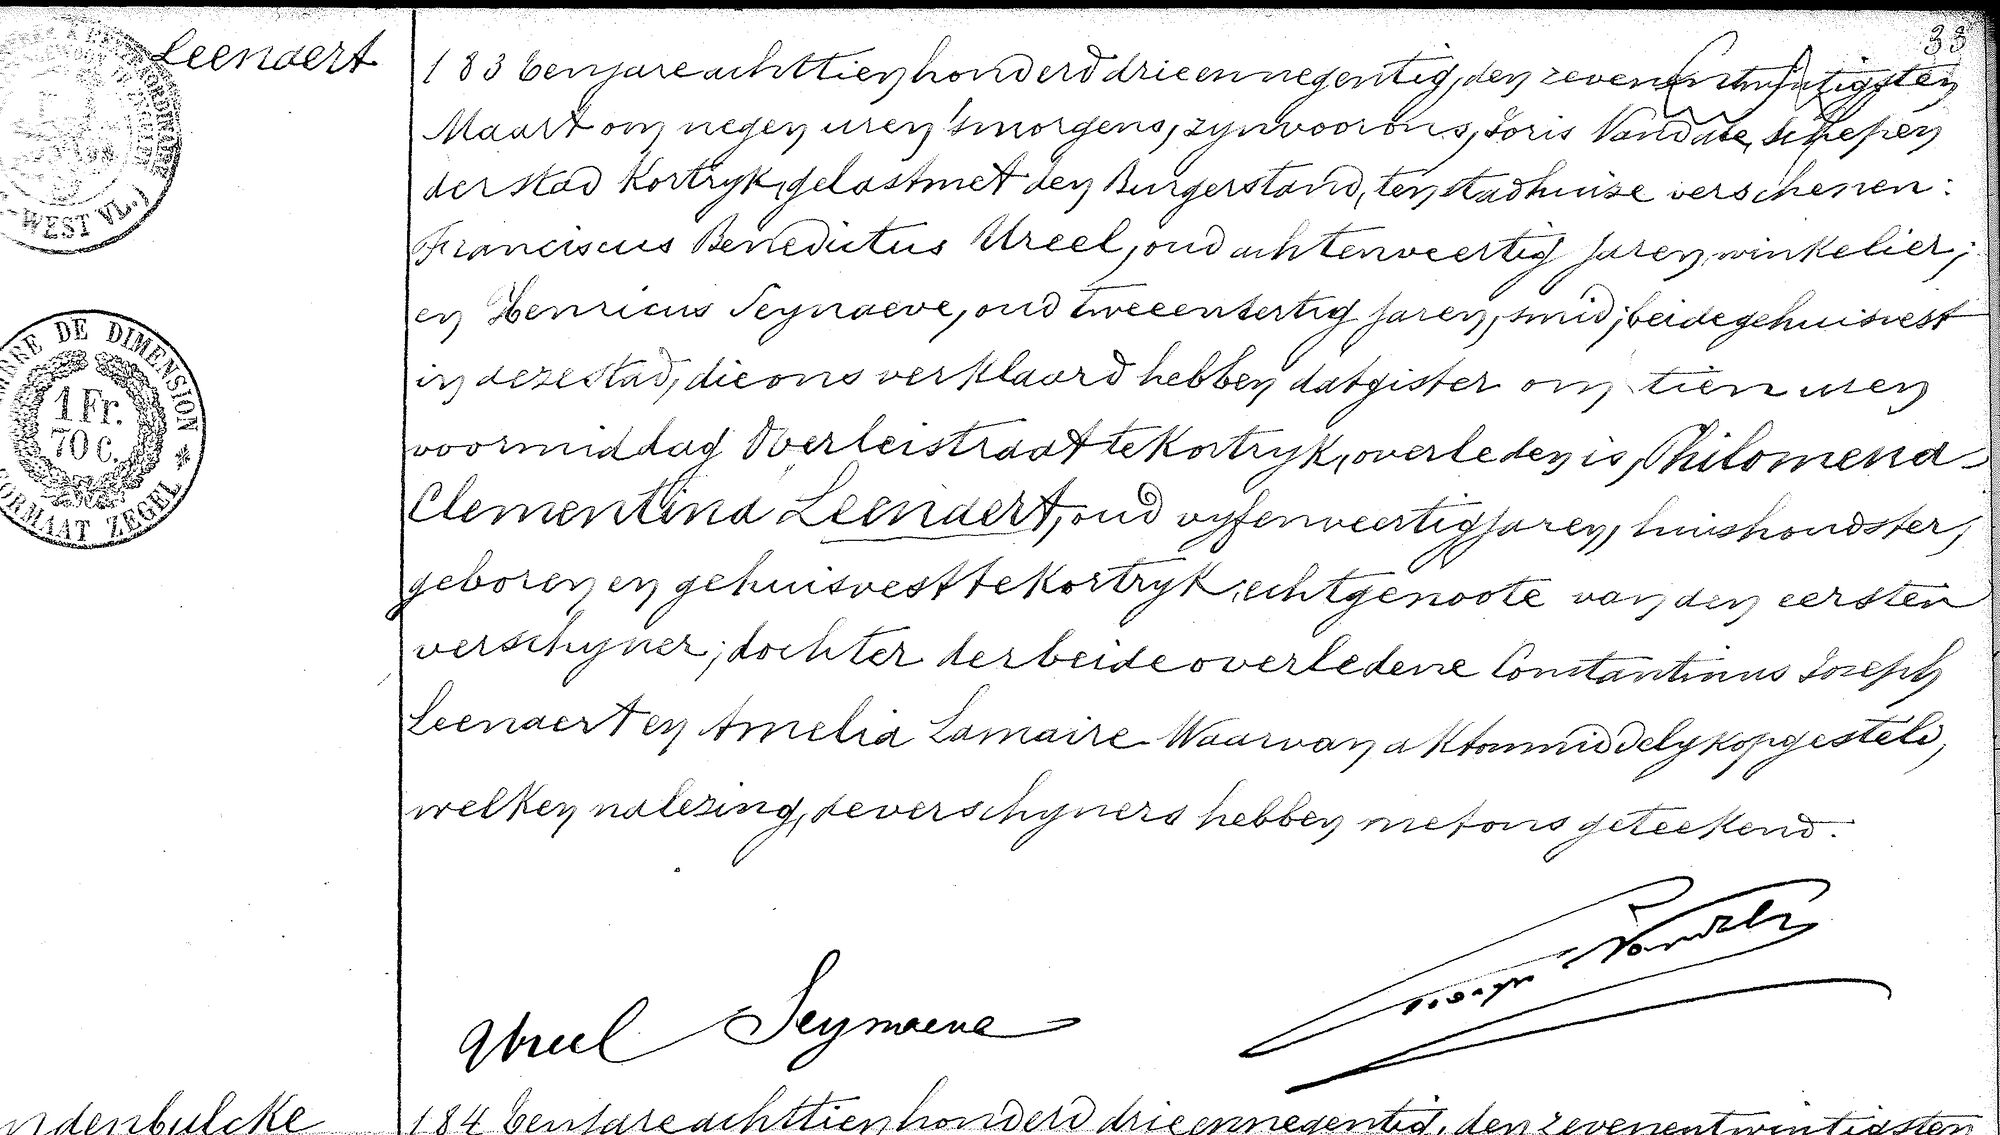 33
Leenaert
183 Ten jare achttien honderd drie en negentig, den zeven en twintigsten
Maart om negen uren 's morgens, zyn voor ons, Joris Vandale, Schepen
der stad Kortryk, gelast met den Burgerstand, ten stadhuize verschenen:
Franciscus Benedictus Ureel, oud acht en veertig jaren, winkelier;
en Henricus Seynaeve, oud twee en dertig jaren, smid; beide gehuisvest
in deze stad, die ons verklaard hebben dat gister om tien uren
voormiddag Overleistraat te Kortryk, overleden is, Philomena-
Clementina Leenaert, oud vyf en veertig jaren, huishoudster,
geboren en gehuisvest te Kortryk, echtgenoote van den eersten
verschyner; dochter der beide overledene Constantinus Joseph
Leenaert en Amelia Lamaire. Waarvan akt onmiddelyk opgesteld,
welken na lezing, de verschyners hebben met ons geteekend.
Ureel Seynaeve
WEST VL.)
TIMBRE DE DIMENSION
1 Fr.
70 C.
FORMAAT ZEGEL
ndenbulcke
184 Ten jare achttien honderd drie en negentig, den zeven en twintigsten